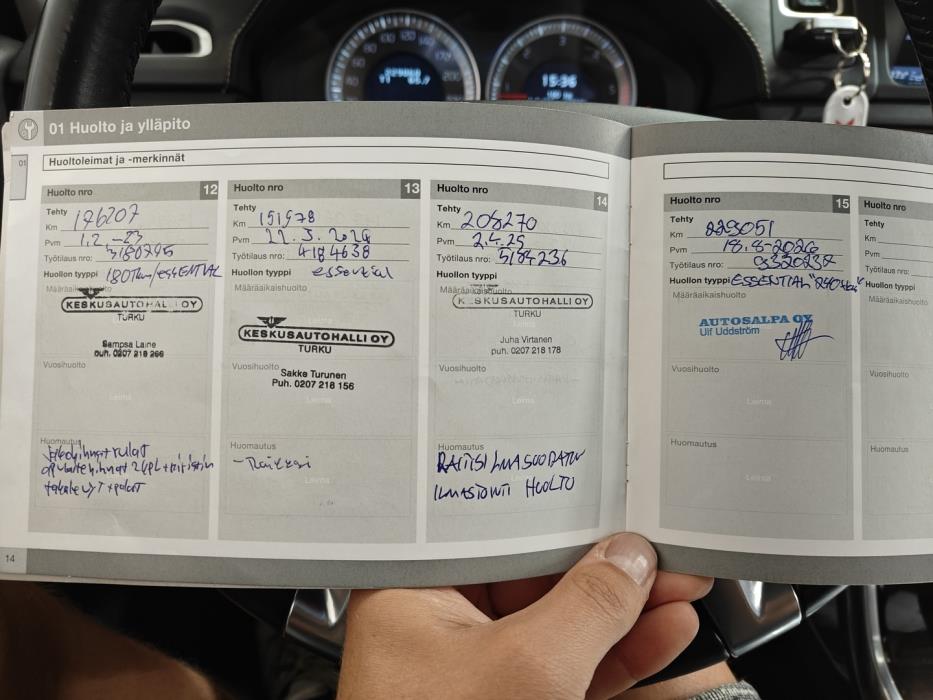 15:36
01 Huolto ja ylläpito
01
Huoltoleimat ja -merkinnät
Huolto nro 12
Tehty
Km 176207
Pvm 1.2.-23
Työtilaus nro: 3180795
Huollon tyyppi 180Tkm/ESSENTIAL
Määräaikaishuolto
KESKUSAUTOHALLI OY
TURKU
Sampsa Laine
puh. 0207 218 266
Vuosihuolto
Leima
Huomautus
Jakohihnat+rullat
apulaitehihnat
14
Huolto nro 13
Tehty
Km 191978
Pvm 22.3.2024
Työtilaus nro: 4184638
Huollon tyyppi essential
Määräaikaishuolto
KESKUSAUTOHALLI OY
TURKU
Sakke Turunen
Puh. 0207 218 156
Vuosihuolto
Leima
Huomautus
Leima
Huolto nro 14
Tehty
Km 208270
Pvm 2.4.25
Työtilaus nro: 5184236
Huollon tyyppi
Määräaikaishuolto
KESKUSAUTOHALLI OY
TURKU
Juha Virtanen
puh. 0207 218 178
Vuosihuolto
Leima
Huomautus
RAITISILMASUODATIN
ILMASTOINTI HUOLTO
Huolto nro 15
Tehty
Km 229051
Pvm 18.8-2026
Työtilaus nro: 9332032
Huollon tyyppi ESSENTIAL "240tkm"
Määräaikaishuolto
AUTOSALPA OY
Ulf Uddström
Vuosihuolto
Leima
Huomautus
Huolto nro
Tehty
Km
Pvm
Työtilaus nro:
Huollon tyyppi
Määräaikaishuolto
Vuosihuolto
Huomautus